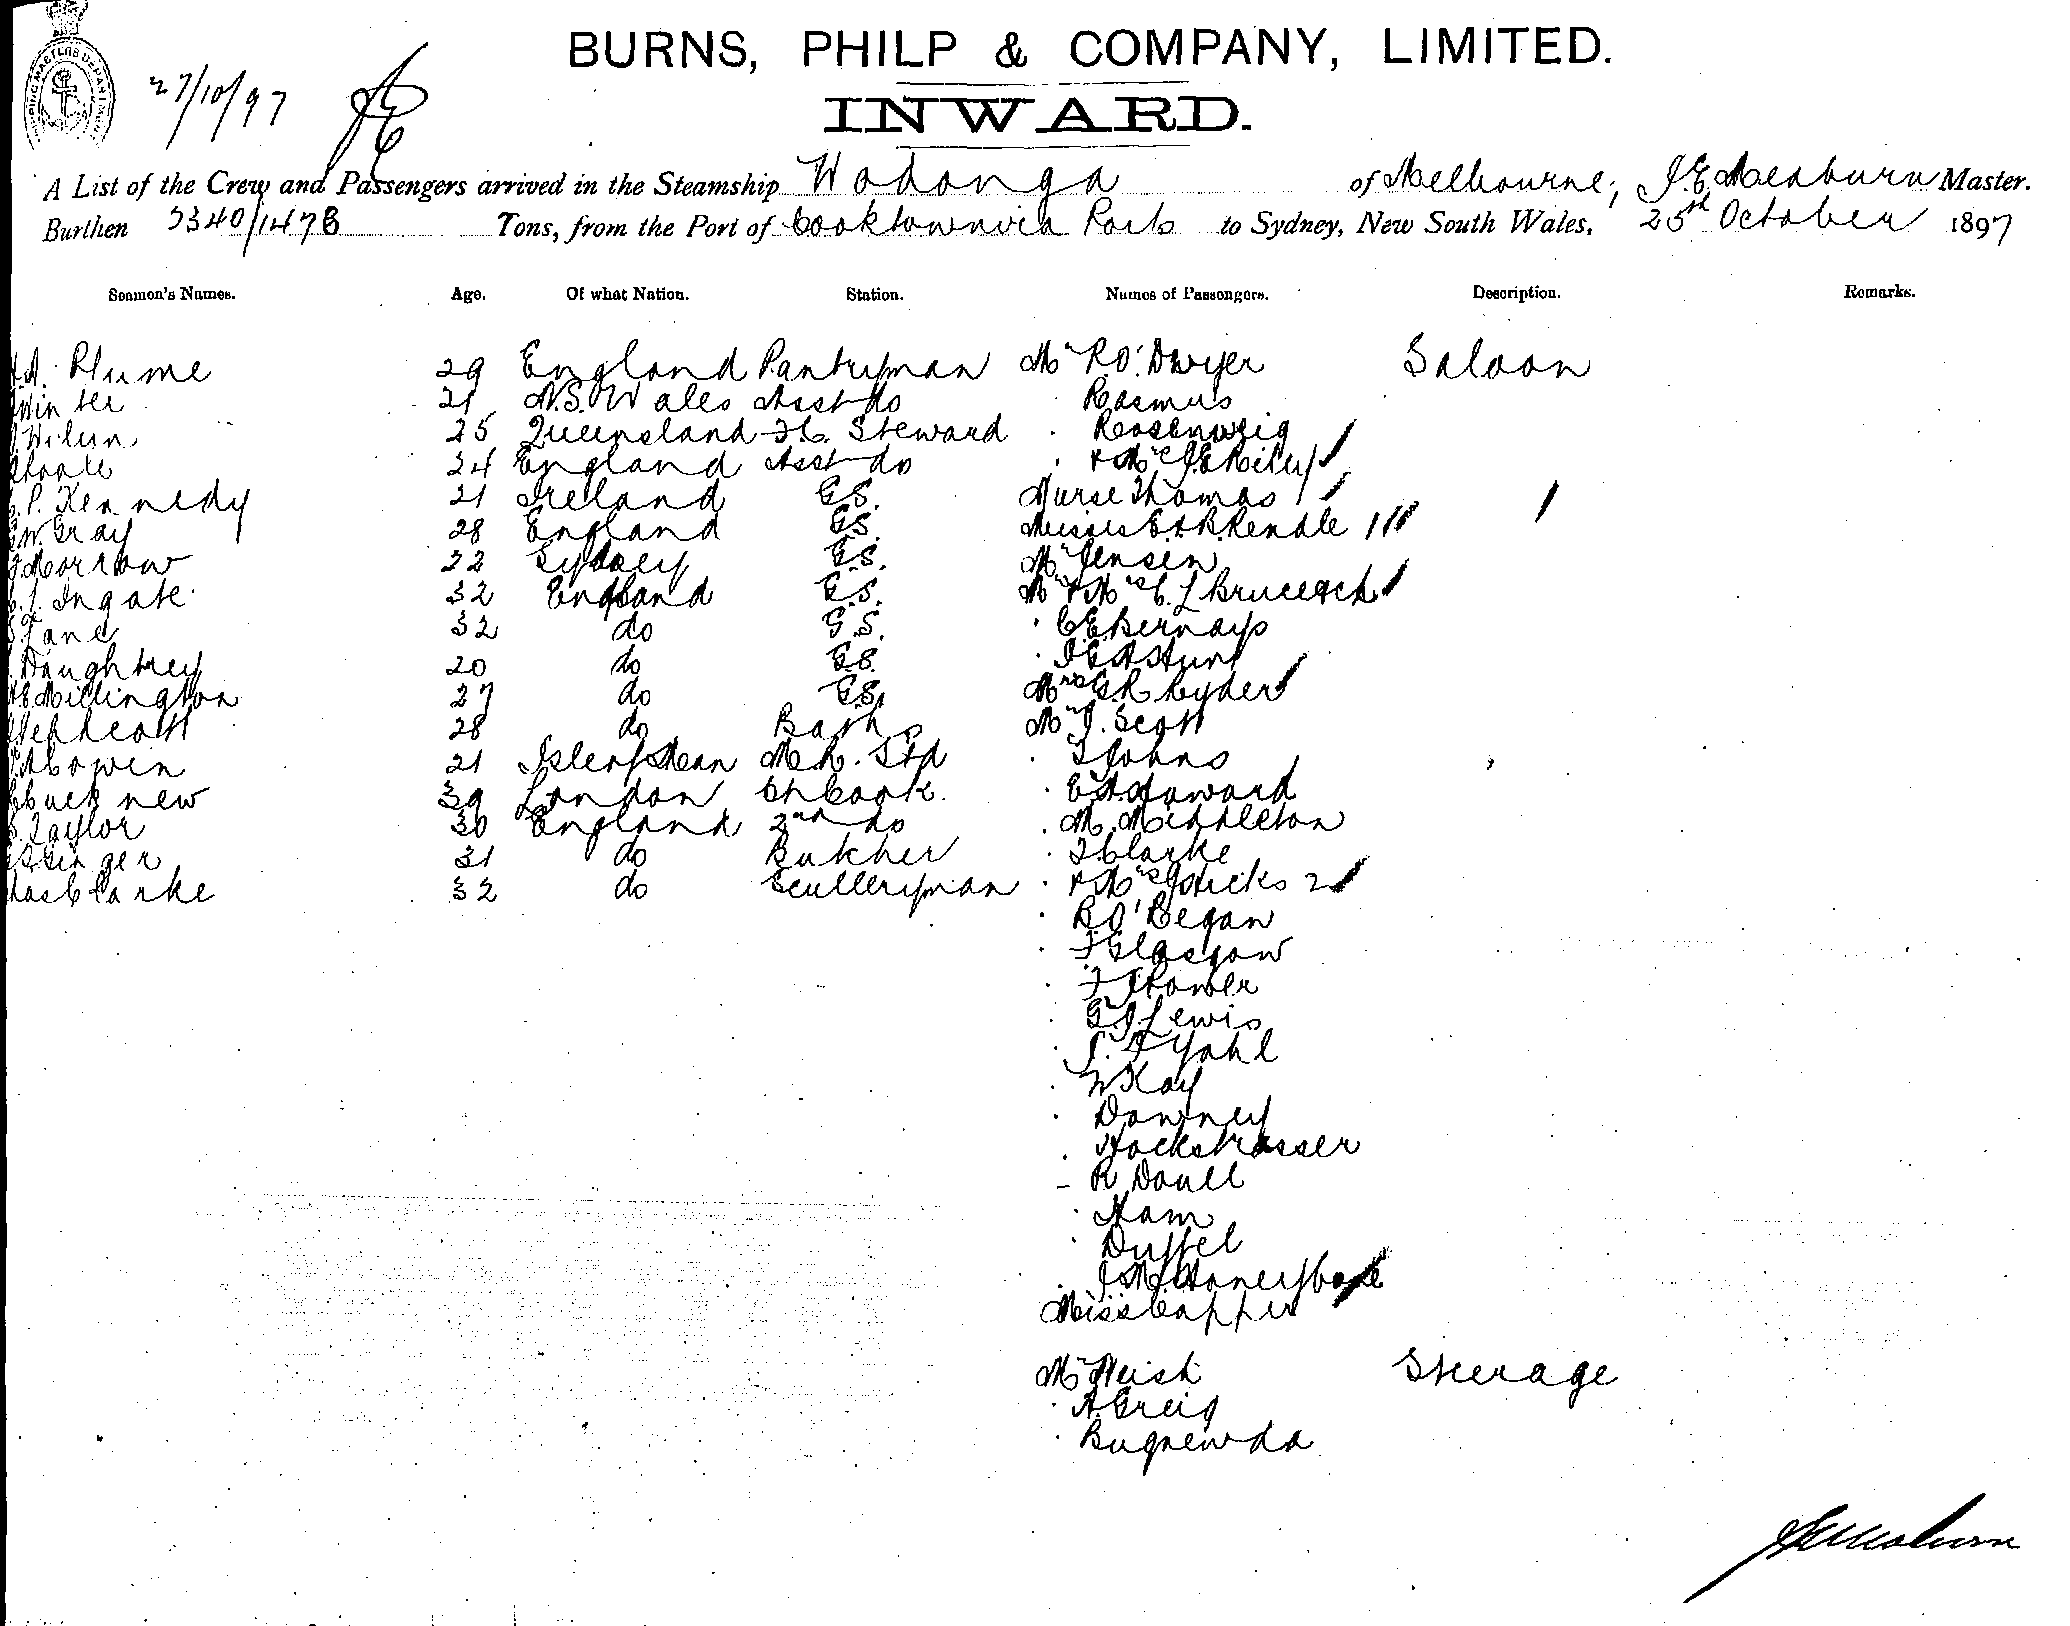 SHIPPING MASTERS DEPARTMENT
27/10/97
BURNS, PHILP & COMPANY, LIMITED.
INWARD.
A List of the Crew and Passengers arrived in the Steamship Wodonga of Melbourne, J. E. Meaburn Master.
Burthen 2340/1478 Tons, from the Port of Cooktown via Ports to Sydney, New South Wales, 25th October 1897
Seamen's Names. Age. Of what Nation. Station. Names of Passengers. Description. Remarks.
A. Plume 29 England Pantryman Mr R. O'Dwyer Saloon
Winter 21 N.S.Wales Asst do Rasmus
Wilun 25 Queensland F.C. Steward Rosenweig
Poole 24 England Asst do & Mrs J E Riley
P. Kennedy 21 Ireland G.S. Nurse Thomas
W. Gray 28 England G.S. Misses E. & R. Rendle
Morrow 22 Sydney G.S. Mr Jensen
Ingate 32 England G.S. Mr & Mrs C. L
Lane 32 do G.S. C E Bernays
Daughtrey 20 do G.S. Hunt
Millington 27 do G.S. Mrs G. R. Ryder
28 do Baths Mr J. Scott
Cowen 21 Isle of Man M.R. Std Johns
Bucknew 39 London Ch Cook E A Howard
S. Taylor 30 England 2nd do M. Middleton
Singer 31 do Butcher J Clarke
Chas Clarke 32 do Sculleryman & Mrs J Hicks 2
R O'Regan
F Glasgow
F J Power
G. J. Lewis
F Yahl
W Kay
Downey
Hockstrasser
R Doull
Ham
Duffel
J. M. Honeybone
Miss Capper
Mr Neish Steerage
A. Greig
Bugnewda
J E Meaburn